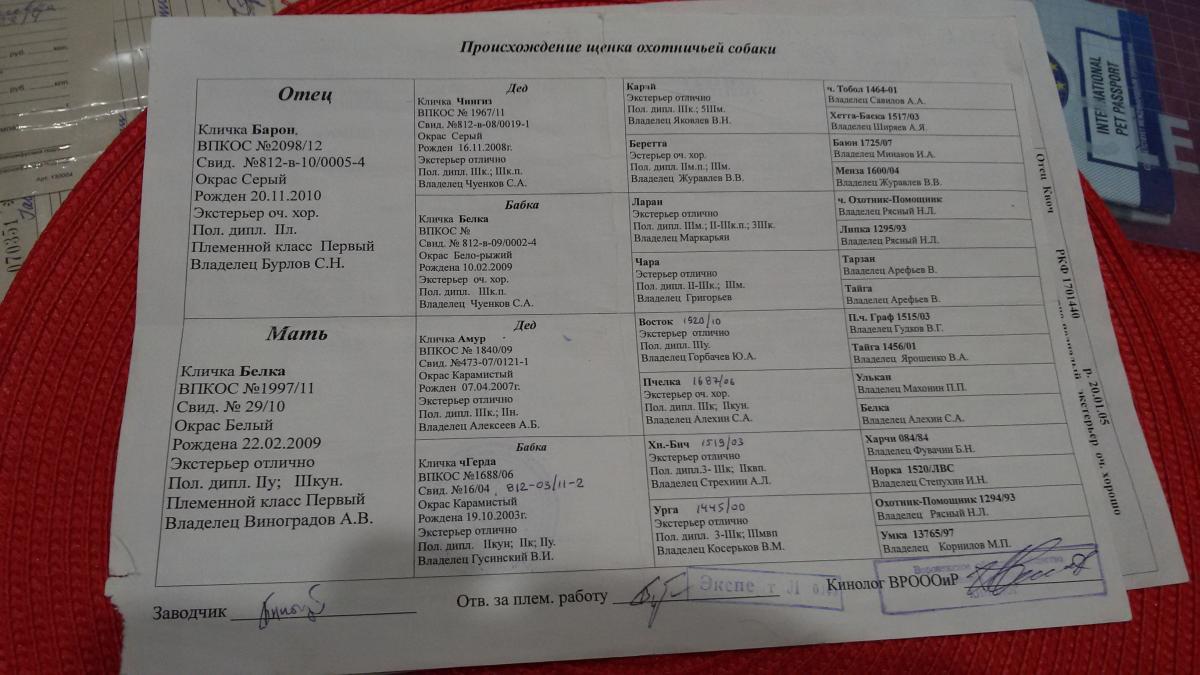 Происхождение щенка охотничьей собаки
Отец
Кличка Барон,
ВПКОС №2098/12
Свид. №812-в-10/0005-4
Окрас Серый
Рожден 20.11.2010
Экстерьер оч. хор.
Пол. дипл. IIл.
Племенной класс Первый
Владелец Бурлов С.Н.
Мать
Кличка Белка
ВПКОС №1997/11
Свид. № 29/10
Окрас Белый
Рождена 22.02.2009
Экстерьер отлично
Пол. дипл. IIу; IIIкун.
Племенной класс Первый
Владелец Виноградов А.В.
Дед
Кличка Чингиз
ВПКОС № 1967/11
Свид. №812-в-08/0019-1
Окрас Серый
Рожден 16.11.2008г.
Экстерьер отлично
Пол. дипл. IIIк.; IIIк.п.
Владелец Чуенков С.А.
Бабка
Кличка Белка
ВПКОС №
Свид. № 812-в-09/0002-4
Окрас Бело-рыжий
Рождена 10.02.2009
Экстерьер оч. хор.
Пол. дипл. IIIк.п.
Владелец Чуенков С.А.
Дед
Кличка Амур
ВПКОС № 1840/09
Свид. №473-07/0121-1
Окрас Карамистый
Рожден 07.04.2007г.
Экстерьер отлично
Пол. дипл. IIIк.; IIн.
Владелец Алексеев А.Б.
Бабка
Кличка чГерда
ВПКОС №1688/06
Свид. №16/04 812-03/11-2
Окрас Карамистый
Рождена 19.10.2003г.
Экстерьер отлично
Пол. дипл. IIкун; IIк; IIу.
Владелец Гусинский В.И.
Карай
Экстерьер отлично
Пол. дипл. IIIк.; 5IIIм.
Владелец Яковлев В.Н.
Беретта
Эстерьер оч. хор.
Пол. дипл. IIм.п.; IIIм.
Владелец Журавлев В.В.
Ларан
Экстерьер отлично
Пол. дипл. IIIм.; II-IIIк.п.; 3IIIк.
Владелец Маркарьян
Чара
Эстерьер отлично
Пол. дипл. II-IIIк.; IIIм.
Владелец Григорьев
Восток 1920/10
Экстерьер отлично
Пол. дипл. IIIу.
Владелец Горбачев Ю.А.
Пчелка 1687/06
Экстерьер оч. хор.
Пол. дипл. IIIк; IIкун.
Владелец Алехин С.А.
Хи.-Бич 1519/03
Экстерьер отлично
Пол. дипл.3- IIIк; IIквп.
Владелец Стрехнин А.Л.
Урга 1445/00
Экстерьер отлично
Пол. дипл. 3-IIIк; IIIмвп
Владелец Косерьков В.М.
ч. Тобол 1464-01
Владелец Савилов А.А.
Хетта-Баска 1517/03
Владелец Ширяев А.Я.
Баюн 1725/07
Владелец Минаков И.А.
Менза 1600/04
Владелец Журавлев В.В.
ч. Охотник-Помощник
Владелец Рясный Н.Л.
Липка 1295/93
Владелец Рясный Н.Л.
Тарзан
Владелец Арефьев В.
Тайга
Владелец Арефьев В.
П.ч. Граф 1515/03
Владелец Гудков В.Г.
Тайга 1456/01
Владелец Ярошенко В.А.
Улькан
Владелец Махонин П.П.
Белка
Владелец Алехин С.А.
Харчи 084/84
Владелец Фувачин Б.Н.
Норка 1520/ЛВС
Владелец Степухин И.Н.
Охотник-Помощник 1294/93
Владелец Рясный Н.Л.
Умка 13765/97
Владелец Корнилов М.П.
Заводчик
Отв. за плем. работу
Экспе т Л
Кинолог ВРОООиР
Отец Ключ РКФ 1701440 р. 20.01.05
экстерьер оч. хорошо
INTERNATIONAL
PET PASSPORT
070351
руб. коп.
руб. коп.